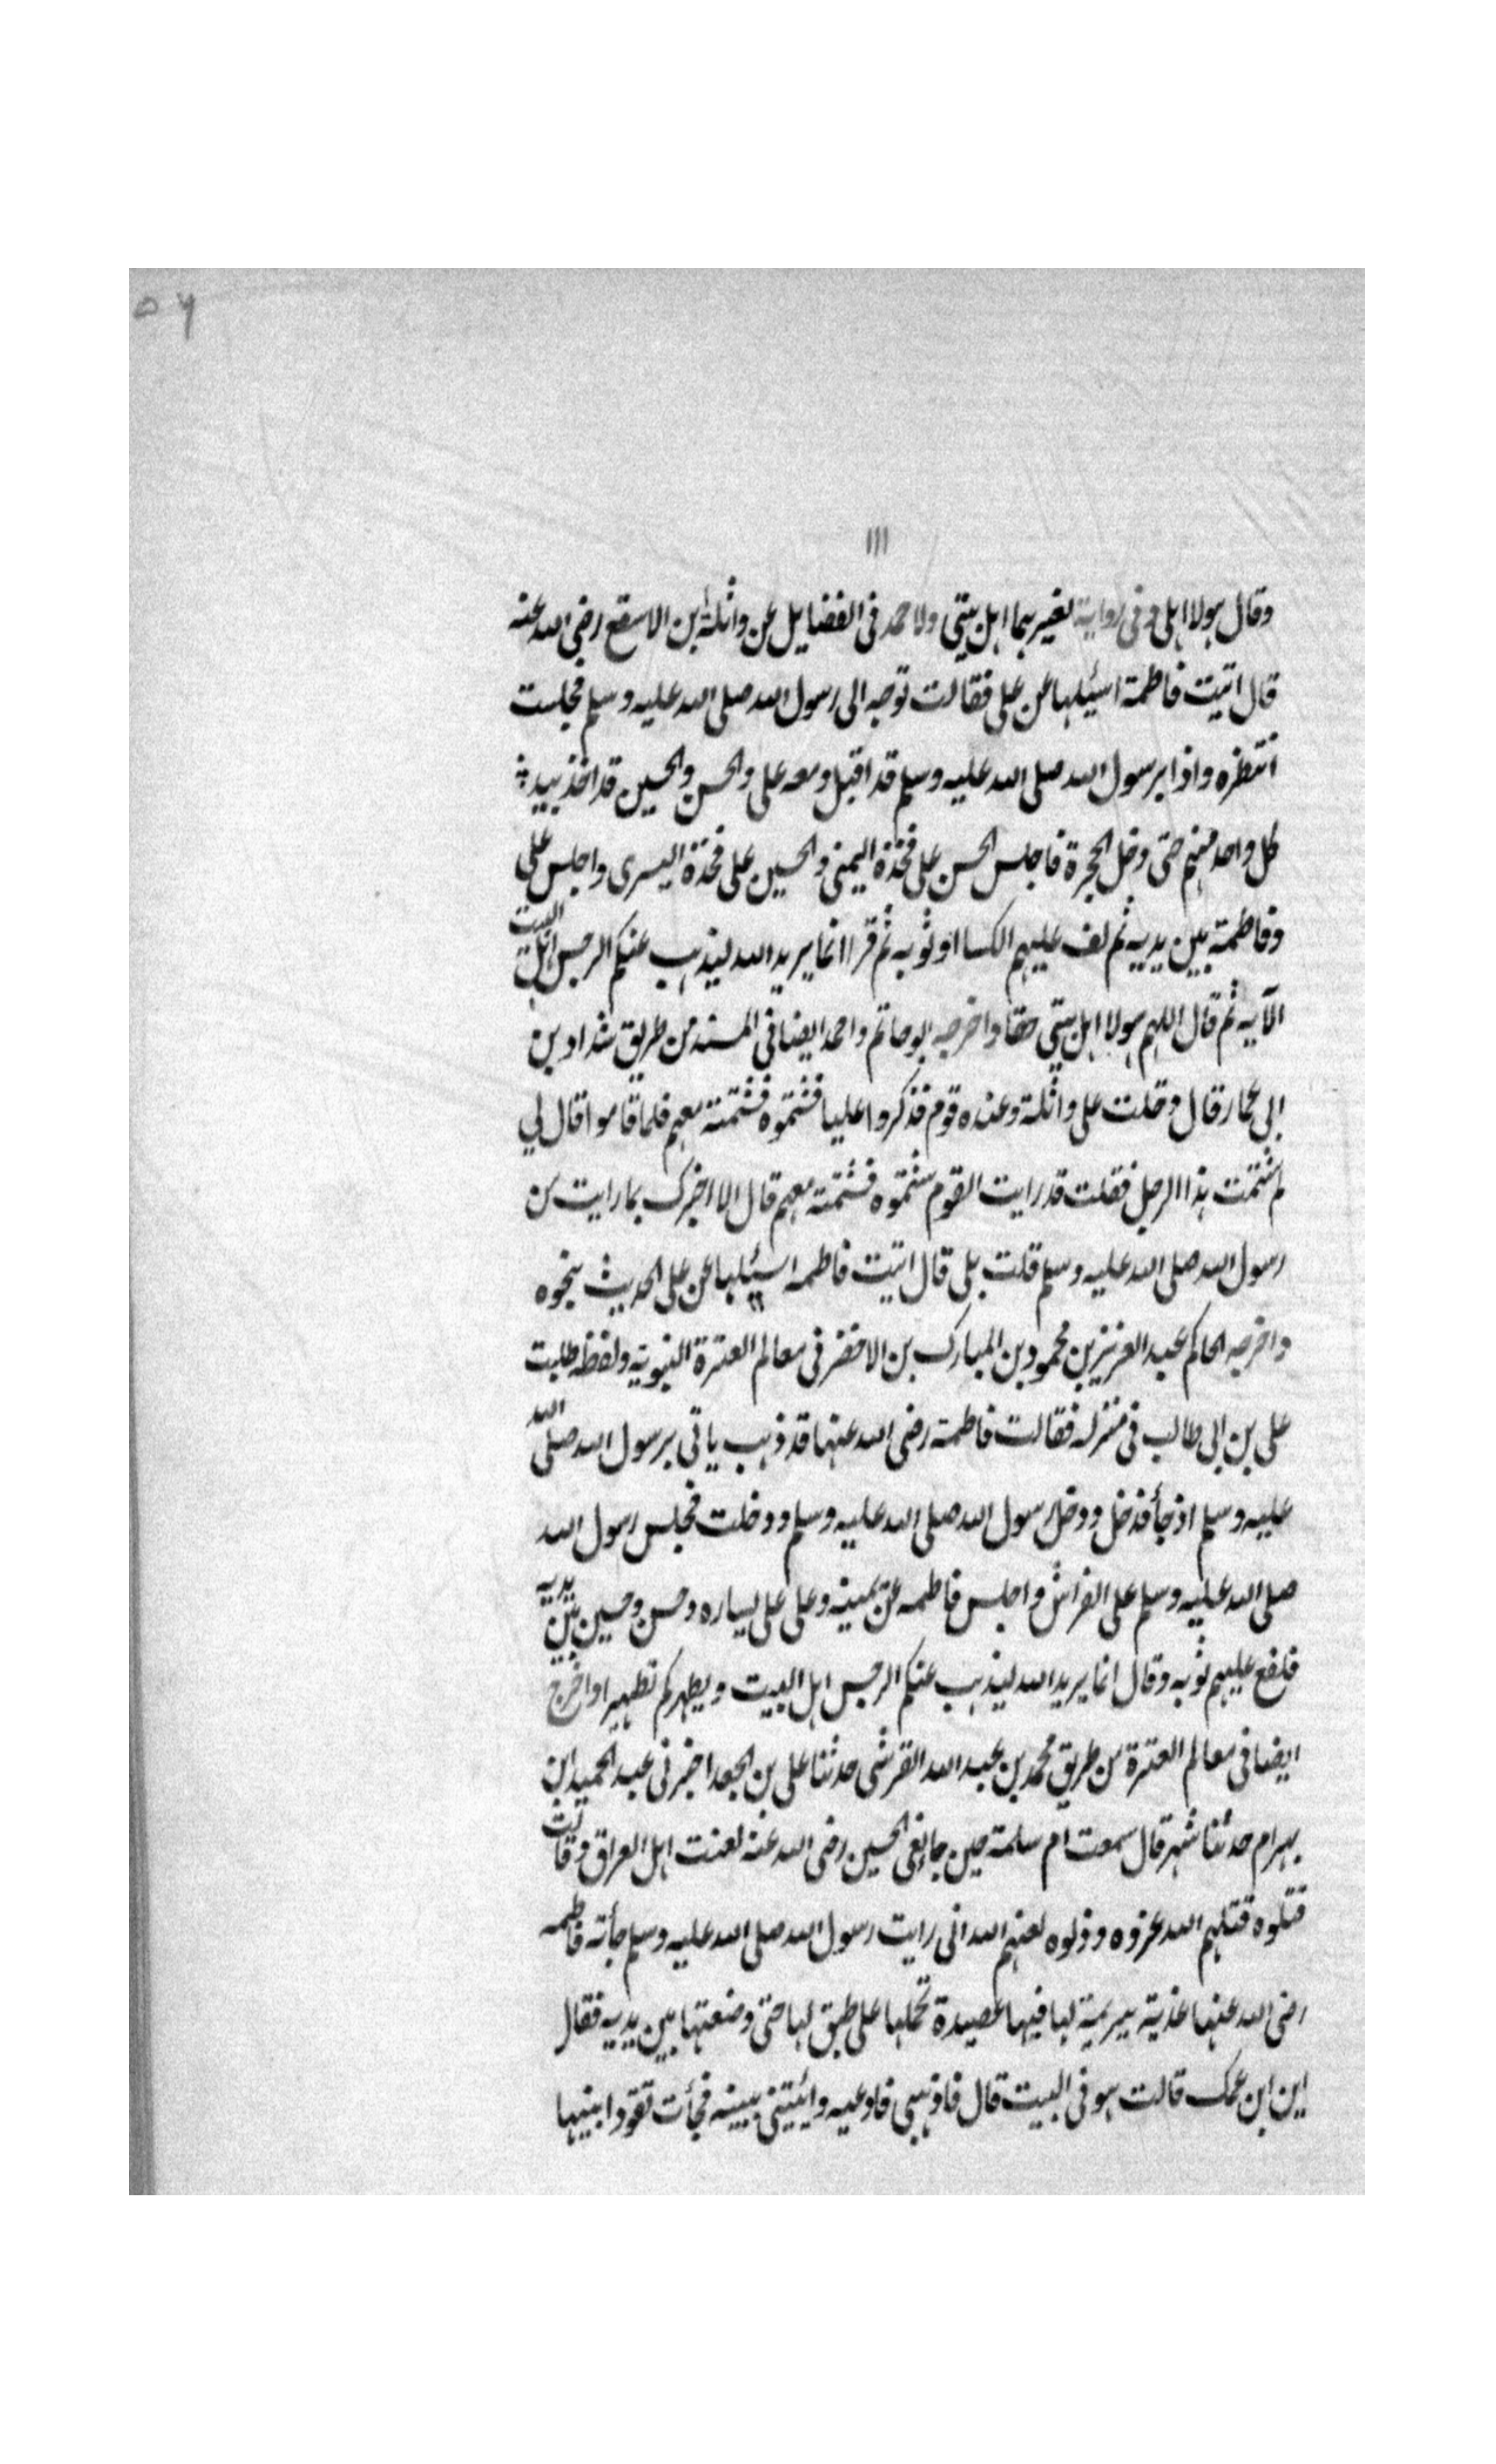 ٥٦
١١١
وقال هولا اهلی و فی روایة لغیرهما اهل بیتی ولاحمد فی الفضایل عن واثلة بن الاسقع رضی الله عنه
قال اتیت فاطمة اسئلها عن علی فقالت توجه الی رسول الله صلی الله علیه وسلم فجلست
انتظره واذا برسول الله صلی الله علیه وسلم قد اقبل ومعه علی والحسن والحسین قد اخذ بید
کل واحد منهم حتی دخل الحجرة فاجلس الحسن علی فخذة الیمنی والحسین علی فخذة الیسری واجلس علی
وفاطمة بین یدیه ثم لف علیهم الکسا او ثوبه ثم قرا انما یرید الله لیذهب عنکم الرجس اهل البیت
الآیه ثم قال اللهم هولا اهل بیتی حقا واخرجه ابوحاتم واحمد ایضا فی المسند من طریق شداد بن
ابی عمار قال دخلت علی واثلة وعنده قوم فذکروا علیا فشتموه فشتمته معهم فلما قاموا قال لی
لم شتمت هذا الرجل فقلت قد رایت القوم شتموه فشتمته معهم قال الا اخبرک بما رایت من
رسول الله صلی الله علیه وسلم قلت بلی قال اتیت فاطمه اسئلها عن علی الحدیث بنحوه
واخرجه الحاکم عبد العزیز بن محمود بن المبارک بن الاخضر فی معالم العترة النبویه ولفظه طلبت
علی بن ابی طالب فی منزله فقالت فاطمة رضی الله عنها قد ذهب یاتی برسول الله صلی الله
علیه وسلم اذ جأ فدخل ودخل رسول الله صلی الله علیه وسلم ودخلت فجلس رسول الله
صلی الله علیه وسلم علی الفراش واجلس فاطمه عن یمینه وعلی علی یساره وحسن وحسین بین یدیه
فلفع علیهم ثوبه وقال انما یرید الله لیذهب عنکم الرجس اهل البیت ویطهرکم تطهیرا واخرج
ایضا فی معالم العترة من طریق محمد بن عبد الله القرشی حدثنا علی بن الجعد اخبرنی عبد الحمید ابن
بهرام حدثنا شهر قال سمعت ام سلمة حین جا نعی الحسین رضی الله عنه لعنت اهل العراق وقالت
قتلوه قتلهم الله غروه وذلوه لعنهم الله انی رایت رسول الله صلی الله علیه وسلم جأته فاطمه
رضی الله عنها غدیة ببریمة لها فیها عصیدة تحملها علی طبق لها حتی وضعتها بین یدیه فقال
این ابن عمک قالت هو فی البیت قال فاذهبی فادعیه وائیتینی ببنیه فجأت تقود ابنیها